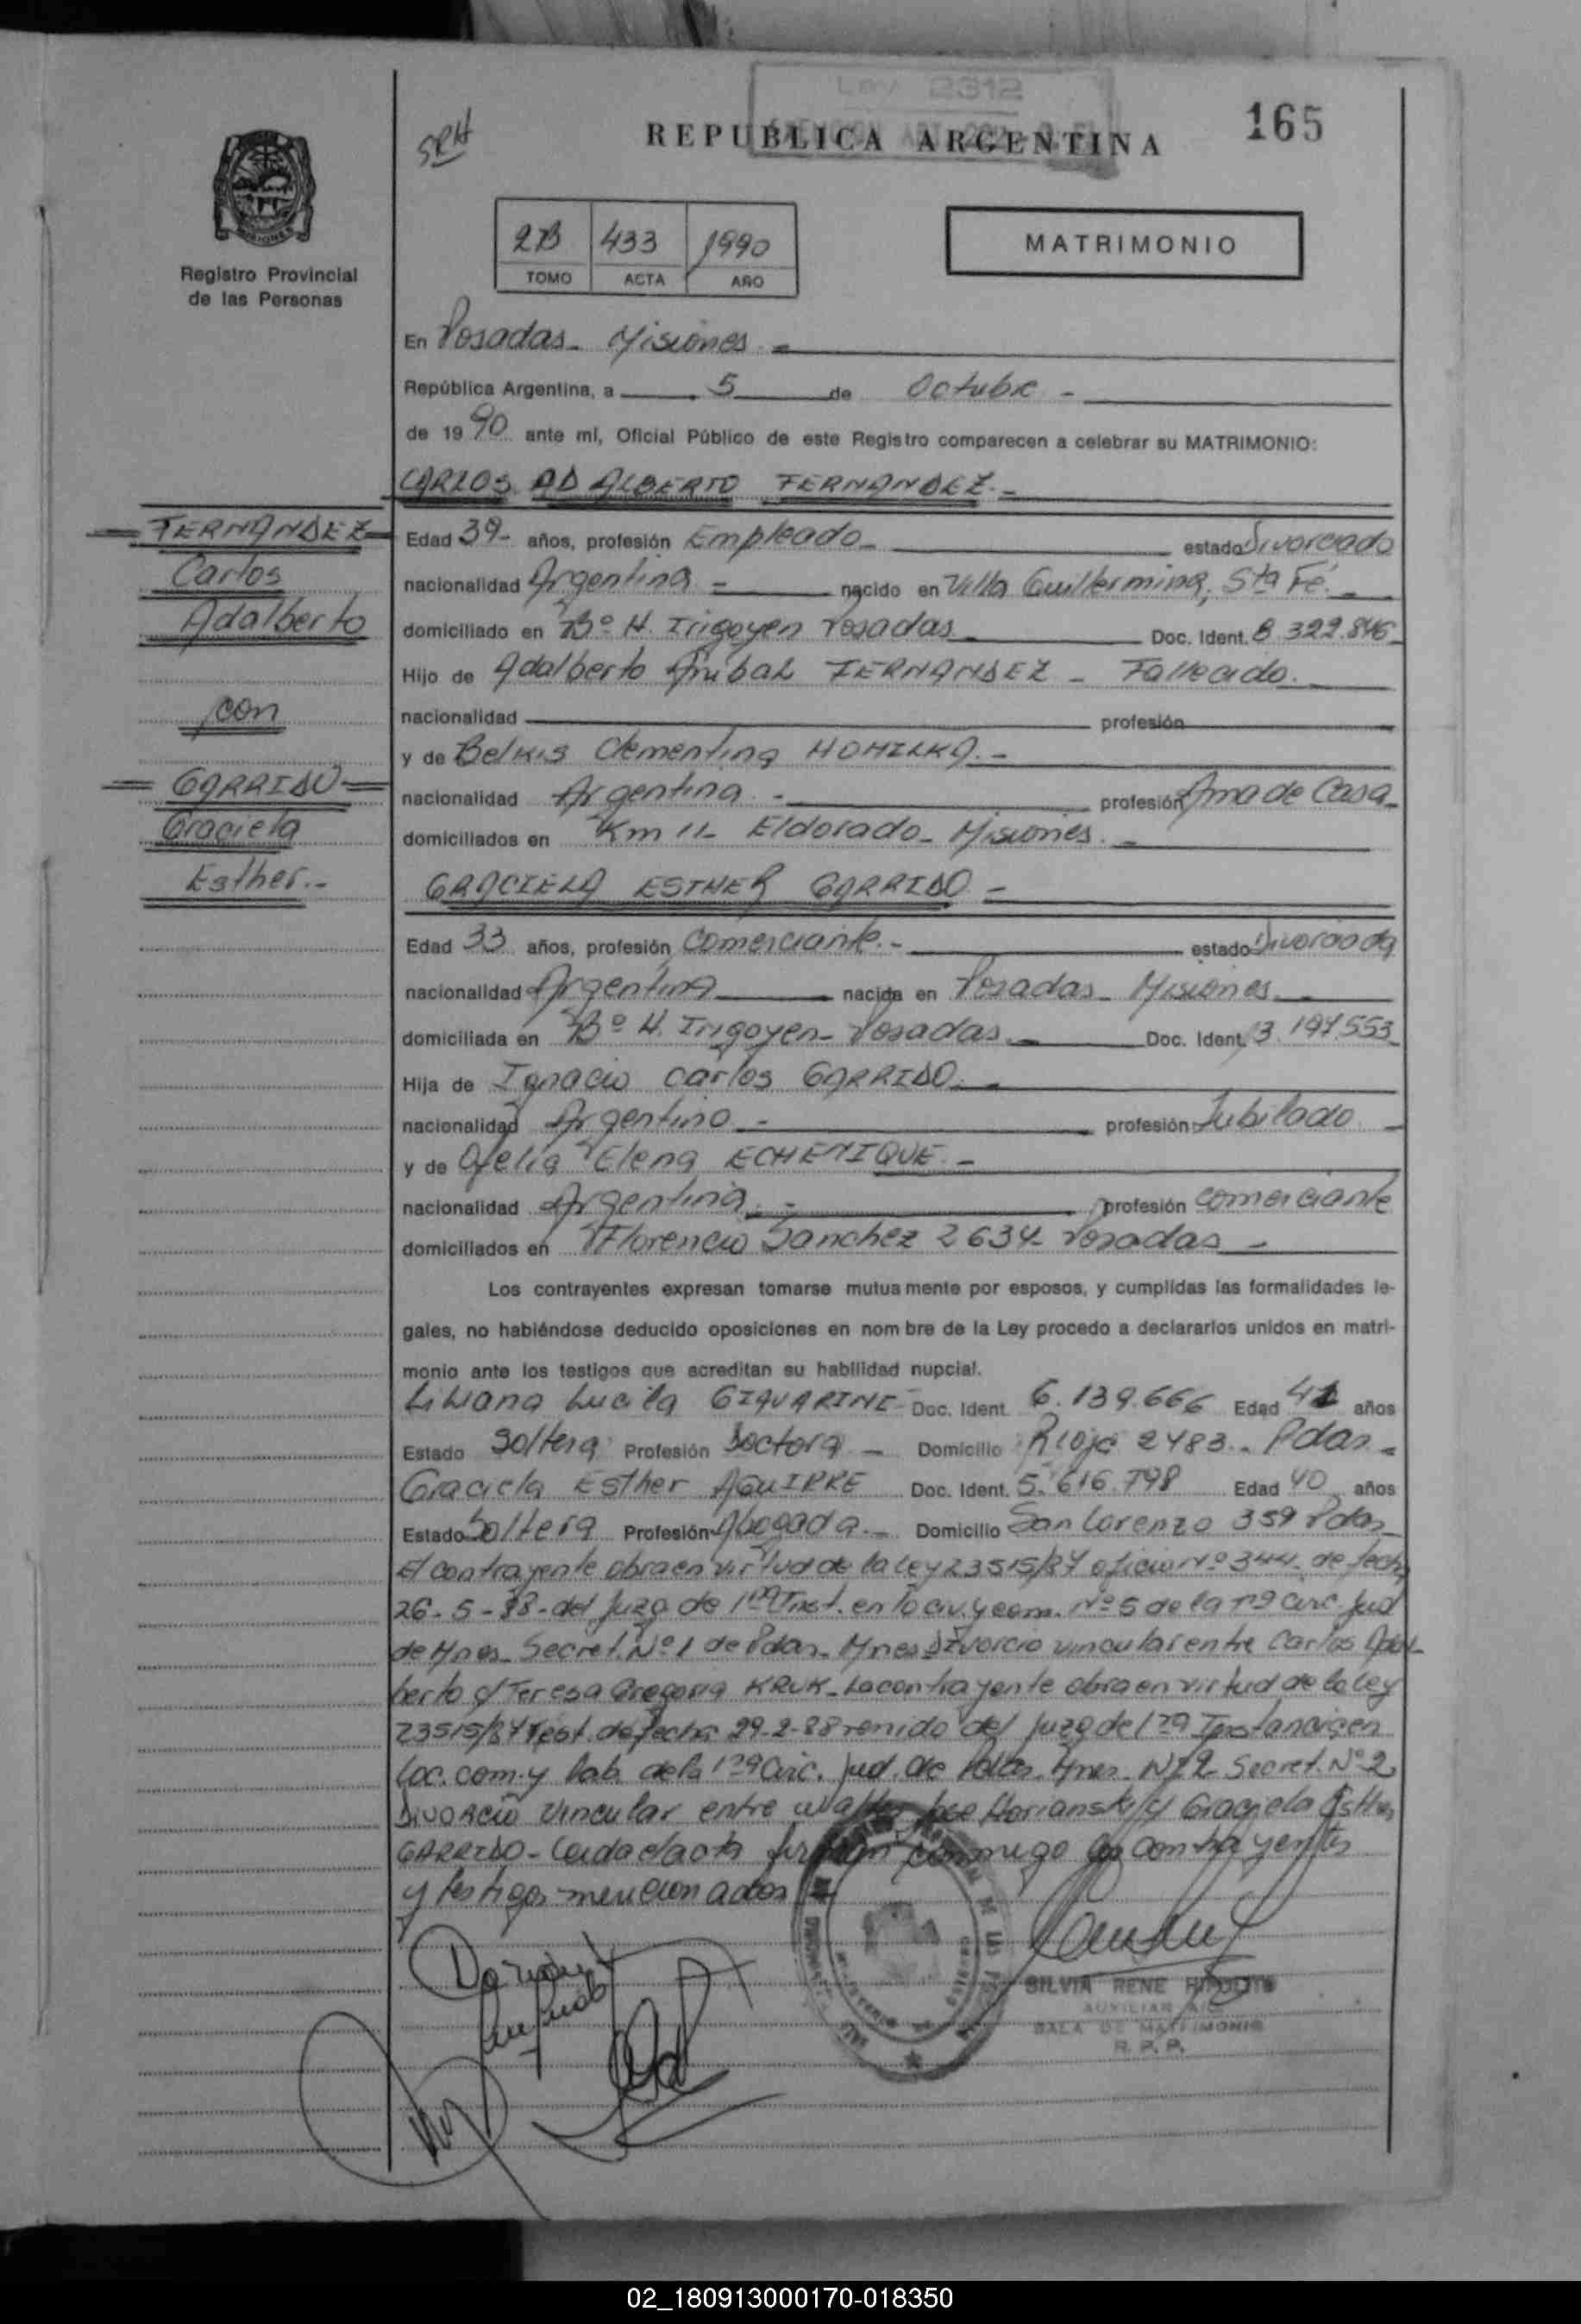 Ley 2312
165
SRH
REPUBLICA ARGENTINA
MISIONES
Registro Provincial
de las Personas
2B 433 1990
TOMO ACTA AÑO
MATRIMONIO
En Posadas - Misiones -
República Argentina, a 5 de Octubre -
de 1990 ante mí, Oficial Público de este Registro comparecen a celebrar su MATRIMONIO:
CARLOS ADALBERTO FERNANDEZ. -
FERNANDEZ
Carlos
Adalberto
con
GARRIDO
Graciela
Esther. -
Edad 39 - años, profesión Empleado - estado Divorciado
nacionalidad Argentina - nacido en Villa Guillermina, Sta Fé. -
domiciliado en Bº H. Irigoyen Posadas Doc. Ident. 8.322.846
Hijo de Adalberto Anibal FERNANDEZ - Fallecido.
nacionalidad profesión
y de Belkis Clementina -
nacionalidad Argentina - profesión Ama de Casa
domiciliados en Km 11 - Eldorado - Misiones. -
GRACIELA ESTHER GARRIDO -
Edad 33 años, profesión Comerciante. - estado Divorciada
nacionalidad Argentina nacida en Posadas - Misiones
domiciliada en Bº H. Irigoyen - Posadas. Doc. Ident. 13.197.553
Hija de Ignacio Carlos GARRIDO. -
nacionalidad Argentino - profesión Jubilado
y de Ofelia Elena ECHENIQUE. -
nacionalidad Argentina. - profesión Comerciante
domiciliados en Florencio Sanchez 2634 Posadas -
Los contrayentes expresan tomarse mutuamente por esposos, y cumplidas las formalidades le-
gales, no habiéndose deducido oposiciones en nombre de la Ley procedo a declararlos unidos en matri-
monio ante los testigos que acreditan su habilidad nupcial.
Liliana Lucila GIAVARINI - Doc. Ident. 6.139.666 Edad 41 años
Estado Soltera Profesión Doctora - Domicilio Rioja 2483 - Pdas -
Graciela Esther AGUIRRE Doc. Ident. 5.616.798 Edad 40 años
Estado Soltera Profesión Abogada. - Domicilio San Lorenzo 359 Pdas
El contrayente obra en virtud de la ley 23515/87 oficio Nº 344 de fecha
26-5-88 - del Juzg de 1ra Inst. en lo civ. y com. Nº 5 de la 1ra circ. Jud
de Mnes - Secret. Nº 1 de Pdas - Mnes Divorcio vincular entre Carlos Adal-
berto c/ Teresa Gregoria KRUK - La contrayente obra en virtud de la ley
23515/87 Test. de fecha 29-2-88 venido del Juzg de 1ra Instancia en
loc. com. y lab. de la 1ra Circ. Jud. de Pdas. Mnes. Nº 2 Secret. Nº 2
Divorcio vincular entre Walter Jose y Graciela Esther
GARRIDO - Leida el acta firman conmigo los contrayentes
y testigos mencionados
SILVIA RENE HIPOLITO
AUXILIAR
SALA DE MATRIMONIO
R. P. P.
02_180913000170-018350